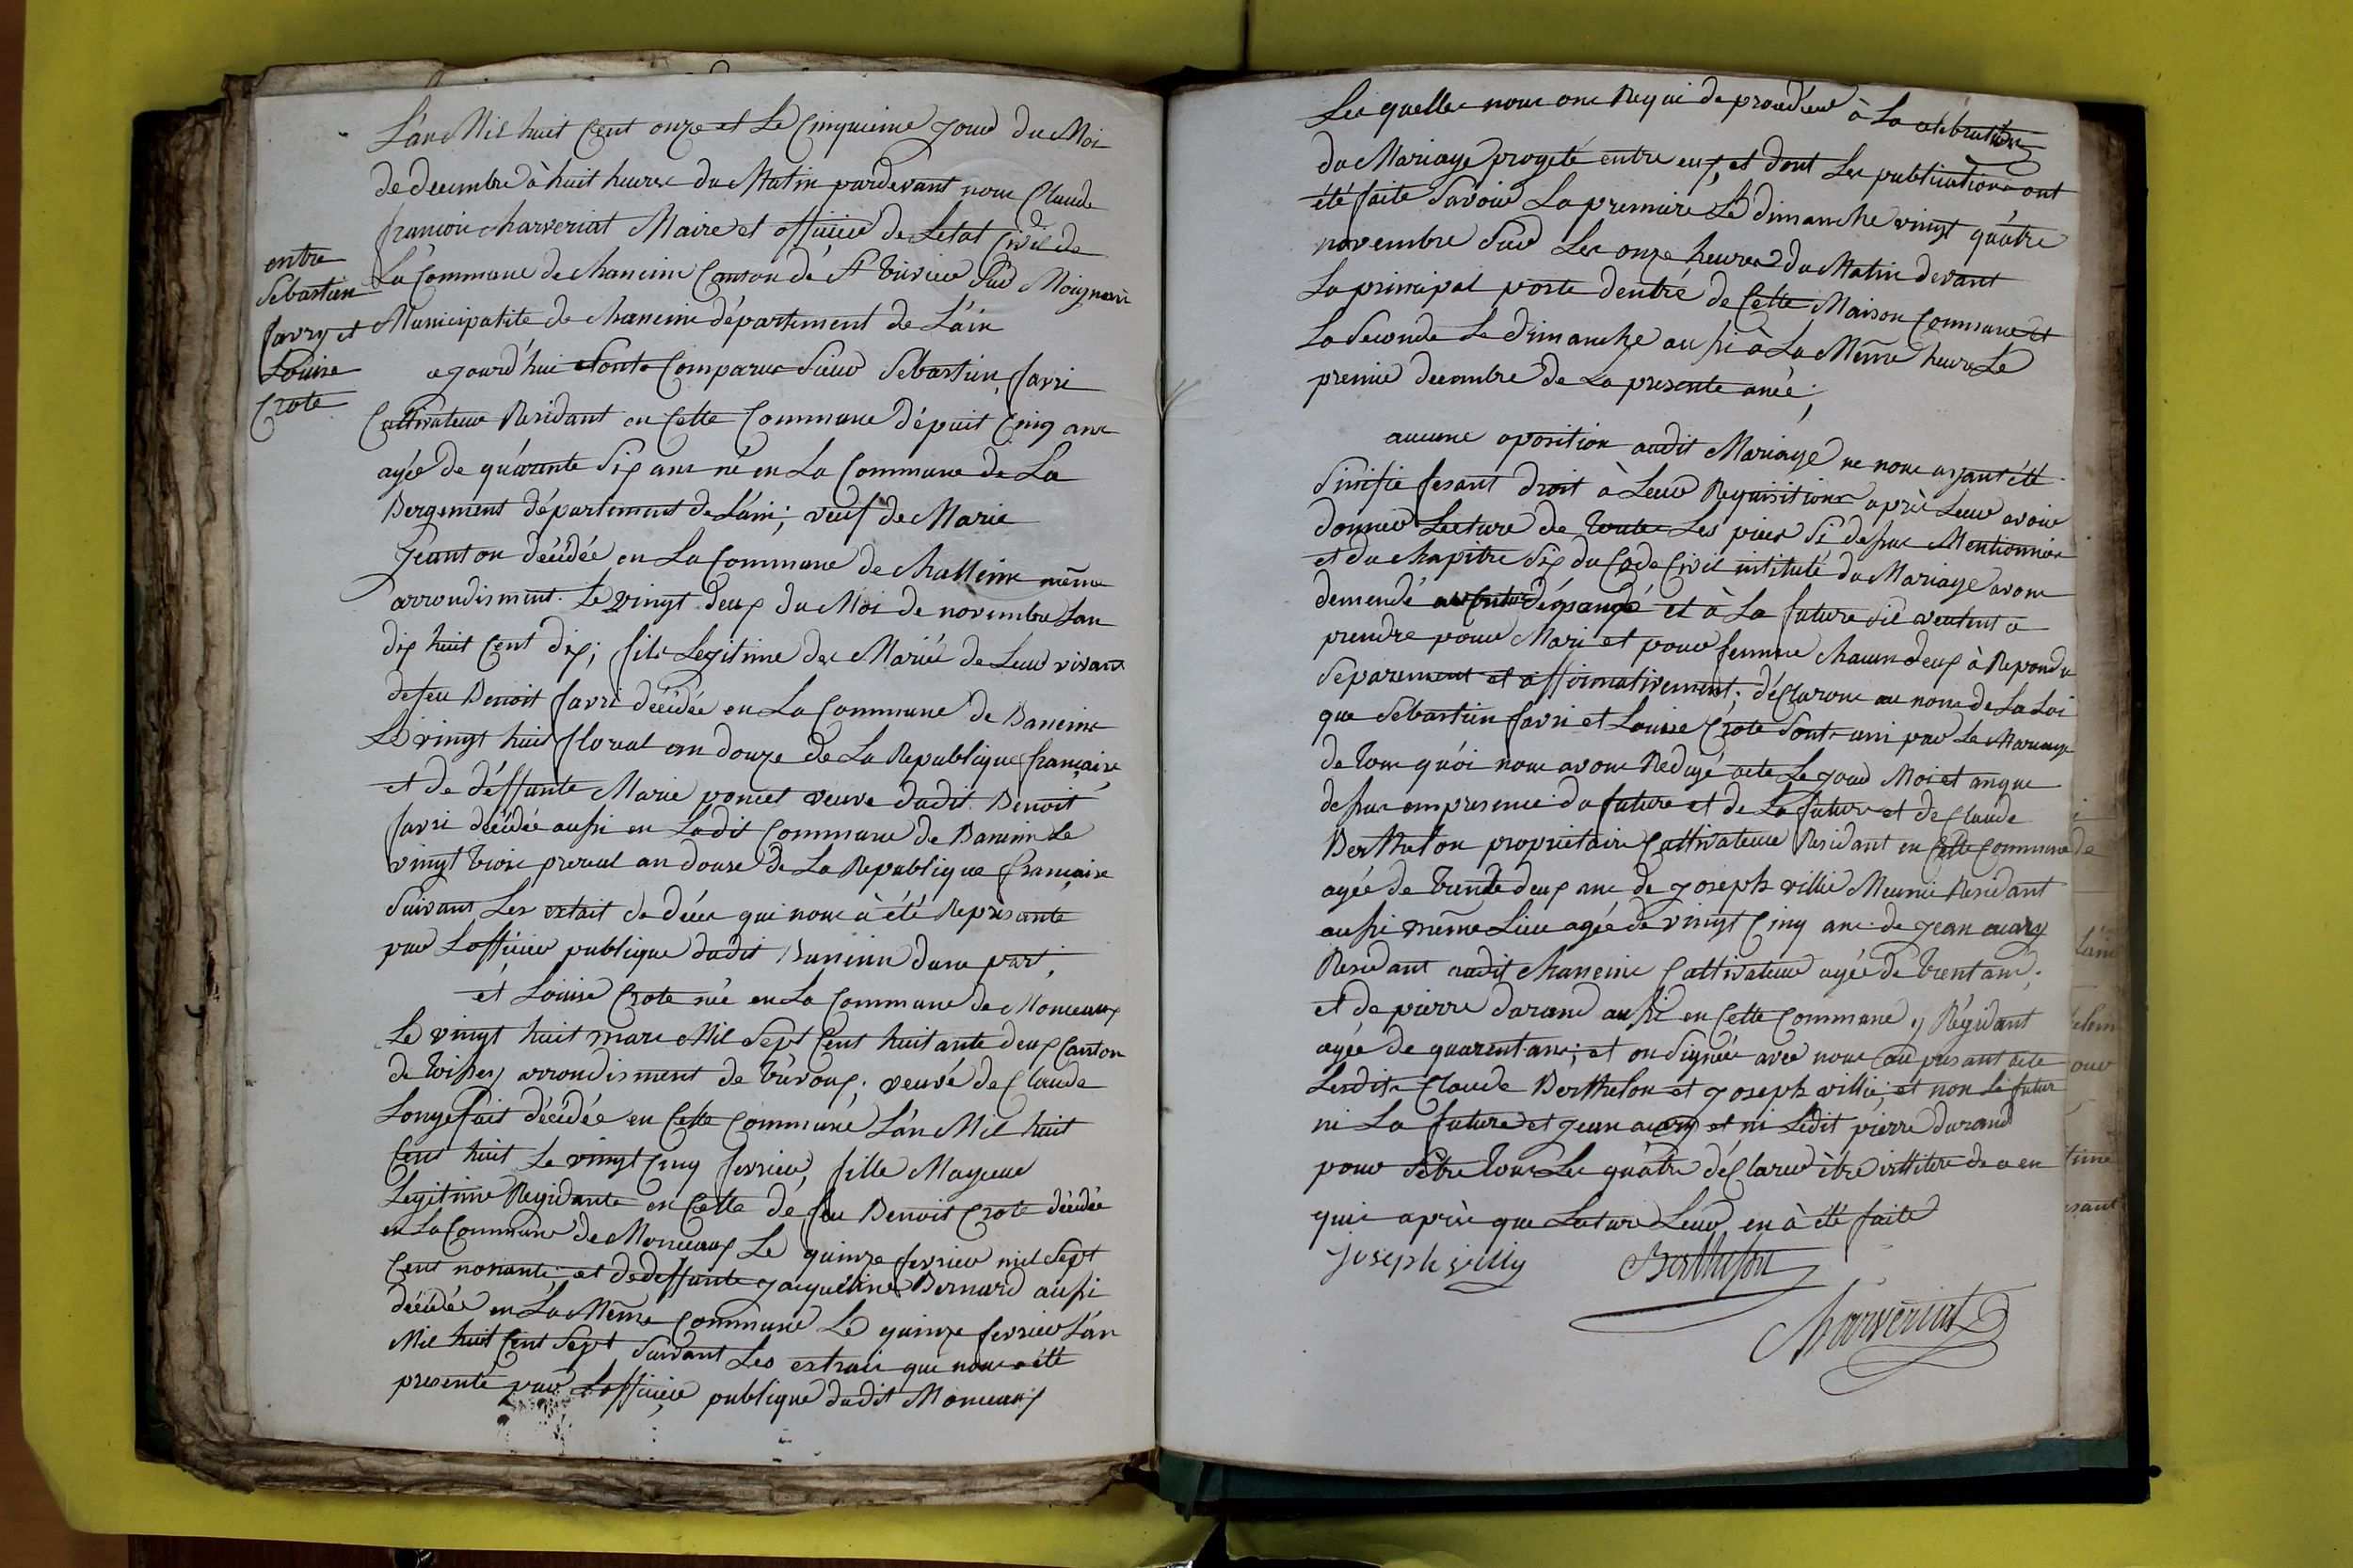 L'an Mil huit Cent onze et Le Cinquieme jour du Moi
de decembre à huit heures du Matin pardevant nous Claude
francois charveriat Maire et officier de Letat Civil de
La Commune de chaneins Canton de St trivier sur Moignans
Municipalite de chaneins département de L'ain
entre
Sebastien
favry et
Louise
Crote
ajourd'hui sont Comparus Sieur Sebastien favri
Cultivateur Residant en Cette Commune dépuit Cinq ans
agée de quarante Six ans né en La Commune de La
Bergement département de L'ain; veuf de Marie
Jeanton décédée en La Commune de Challeins même
arrondisment. Le vingt deux du Moi de novembre Lan
dix huit Cent dix; fils Legitime des Mariés de Leur vivant
de feu Benoit favri décédée en La Commune de Baneins
Le vingt huit floreal an douze de La Republique française
et de déffunte Marie poncet veuve dudit Benoit
favri décédée aussi en Ladit Commune de Banein Le
vingt trois prereal an douse de La Republique française
Suivant Les extait de déces qui nous à été Représanté
par Lofficier publique dudit Baneins dune part,
et Louise Crote née en La Commune de Monceaux
Le vingt huit mars Mil Sept Cent huitante deux Canton
de toissey arrondisment de trévoux; veuvé de Claude
Longefait décédée en Cette Commune L'an Mil huit
Cent huit Le vingt Cinq fevrier, fille Mageure
Legitime Residante en Cette dé feu Benoit Crote décédée
en La Commune de Monceaux Le quinze fevrier mil Sept
Cent nonante; et de deffunte Jacqueline Bernard aussi
décédée en La Même Commune Le quinze fevrier L'an
Mil huit Cent Sept Suivant Les extrais qui nous a été
presenté par Lofficier publique dudit Monceaux
Les quelles nous ons Requi de procédeur à La célébration
du Mariage progeté entre eux, et dont Les publications ont
été faite Savoir La premiere Le dimanche vingt quâtre
novembre Sur Les onze heures du Matin devant
La principal porte dentré de Cette Maison Commune et
La Seconde Le dimanche aussi à La Même heure Le
premie decembre de La presente anée;
aucune oposition audit Mariage ne nous ayant été
Sinifié fesant droit à Leur Requisitions après Leur avoir
donner Lecture de toutes Les pieces Si dessus Mentionnées
et du chapitre Six du Code Civil intitulé du Mariage avons
demendé au futur et à La future Sil veulent a
prendre pour Mari et pour femme chacun deux à Repondu
Séparement et affirmativement; déClarons au nom de La Loi
que Sebastien favri et Louise Crote Sont uni par Le Mariage
de tous quói nous avons Redigé acte Le jour Moi et an que
dessus en presence du future et de La future et de Claude
Berthelon proprietaire Cultivateur Residant en Cette Commune
agée de trente deux ans de joseph villié Meunié Residant
aussi même Lieu agée de vingt Cinq ans de jean
Residant audit chaneins Cultivateur agée de trent ans;
et de pierre durand aussi en Cette Commune y Résidant
agée de quarent ans; et on Signée avec nous au present acte
Lesdits Claude Berthelon et joseph villié; et non Le futur
ni La future et jean et ni Ledit pierre durand
pour être tous Les quâtre déClarer être illitere de a en
quis après que Lecture Leur en à été faite
joseph villy Berthelon
Charveriat